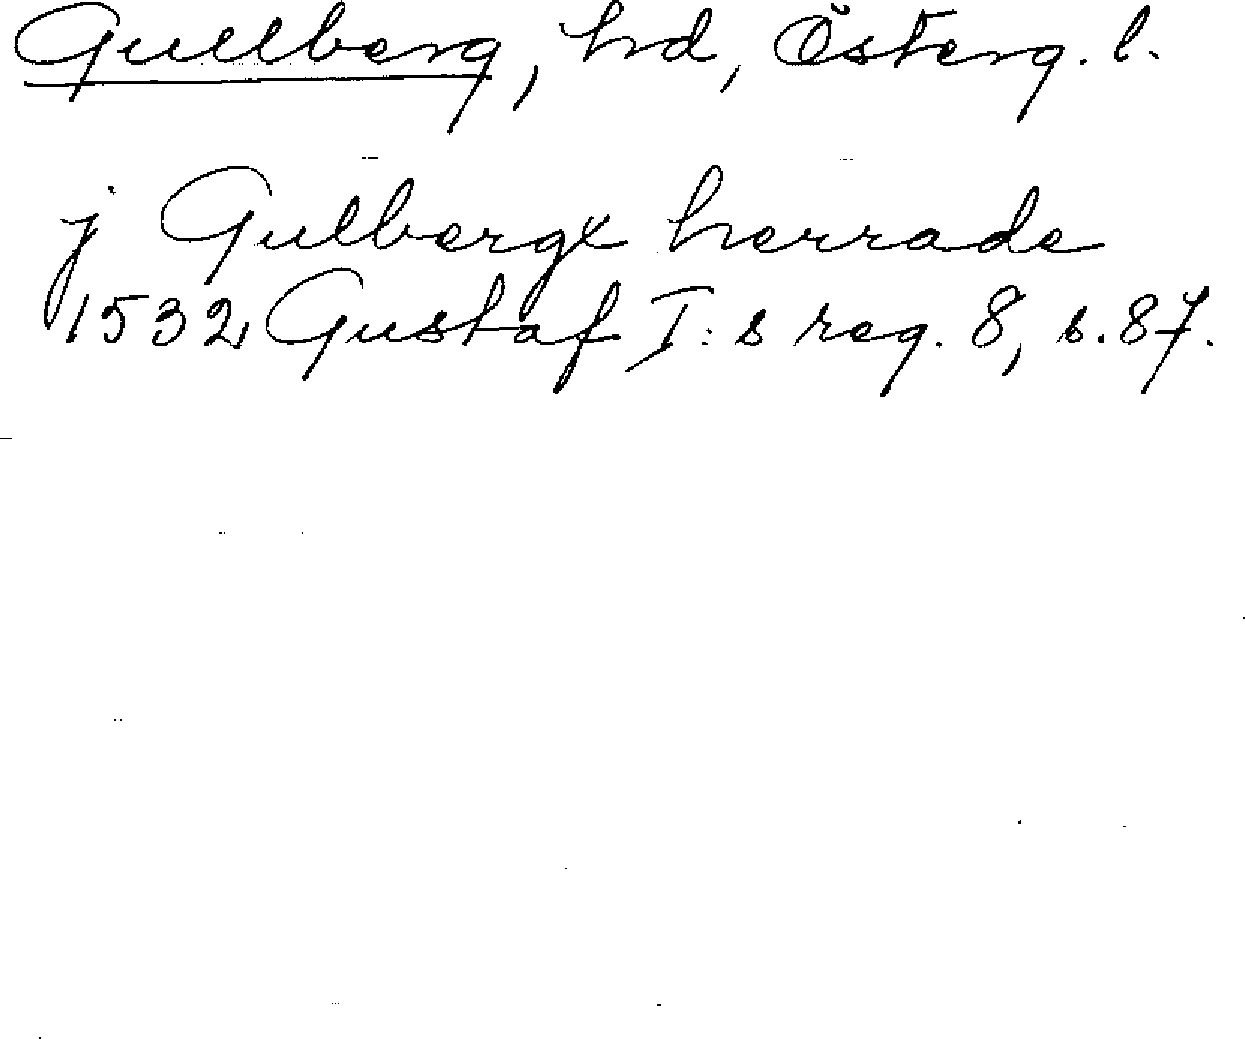 Gullberg, hd, Österg. l.
j Gulbergx herrade
1532 Gustaf I:s reg. 8, s. 87.